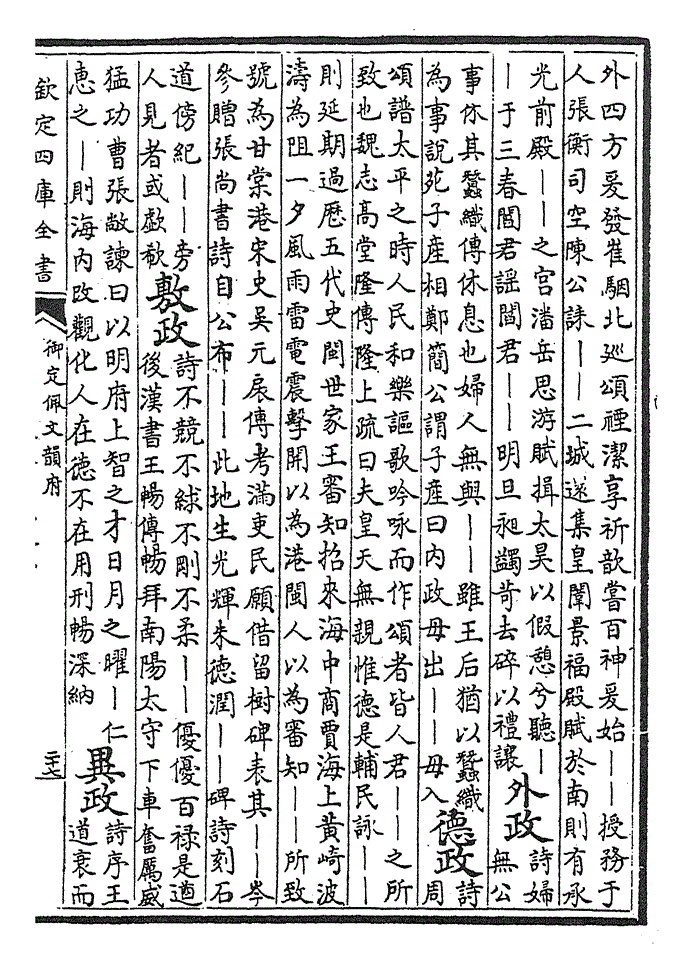 外四方爰發崔駰北廵頌禋潔享祈歆嘗百神爰始——授務于
人張衡司空陳公誄——二城遂集皇闈景福殿賦於南則有承
光前殿——之宫潘岳思游賦揖太昊以假憩兮聽—
—于三春閻君謡閻君——明旦昶蠲苛去碎以禮讓
外政
詩婦
無公
事休其蠶織傳休息也婦人無與——雖王后猶以蠶織
為事說苑子產相鄭簡公謂子產曰内政毋出——毋入
德政
詩
周
頌譜太平之時人民和樂謳歌吟咏而作頌者皆人君——之所
致也魏志高堂隆傳隆上疏曰夫皇天無親惟德是輔民詠——
則延期過歷五代史閩世家王審知招來海中商賈海上黄崎波
濤為阻一夕風雨雷電震擊開以為港閩人以為審知——所致
號為甘棠港宋史吳元扆傳考滿吏民願借留樹碑表其——岑
參贈張尚書詩自公布——此地生光輝朱德潤——碑詩刻石
道傍紀——旁
人見者或歔欷
敷政
詩不競不絿不剛不柔——優優百禄是遒
後漢書王暢傳暢拜南陽太守下車奮厲威
猛功曹張敞諫曰以明府上智之才日月之曜—仁
恵之—則海内改觀化人在德不在用刑暢深納
異政
詩序王
道衰而
欽定四庫全書
御定佩文韻府
二十七